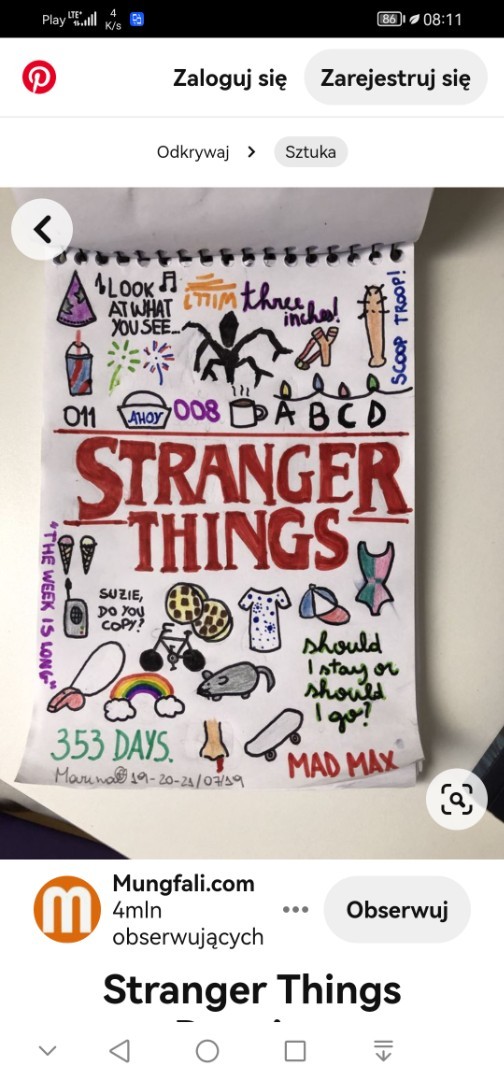 Play LTE 4 K/s 86 08:11
Zaloguj się Zarejestruj się
Odkrywaj > Sztuka
LOOK
AT WHAT
YOU SEE...
three
inches!
SCOOP TROOP!
011 AHOY 008 A B C D
STRANGER
THINGS
"THE WEEK IS LONG"
SUZIE,
DO YOU
COPY?
should
I stay or
should
I go?
353 DAYS.
MAD MAX
19-20-21/07/19
Mungfali.com
4mln
obserwujących
Obserwuj
Stranger Things